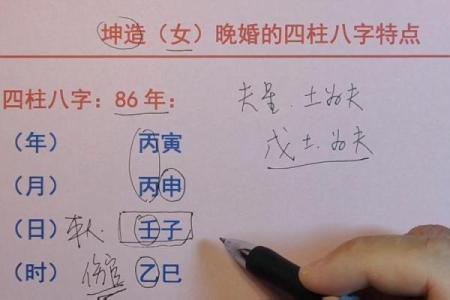 坤造（女）晚婚的四柱八字特点
四柱八字：86年： 夫星．土为夫
（年） 丙寅 戊土．为夫
（月） 丙申
（日） 本人 壬子
（时） 伤官 乙巳